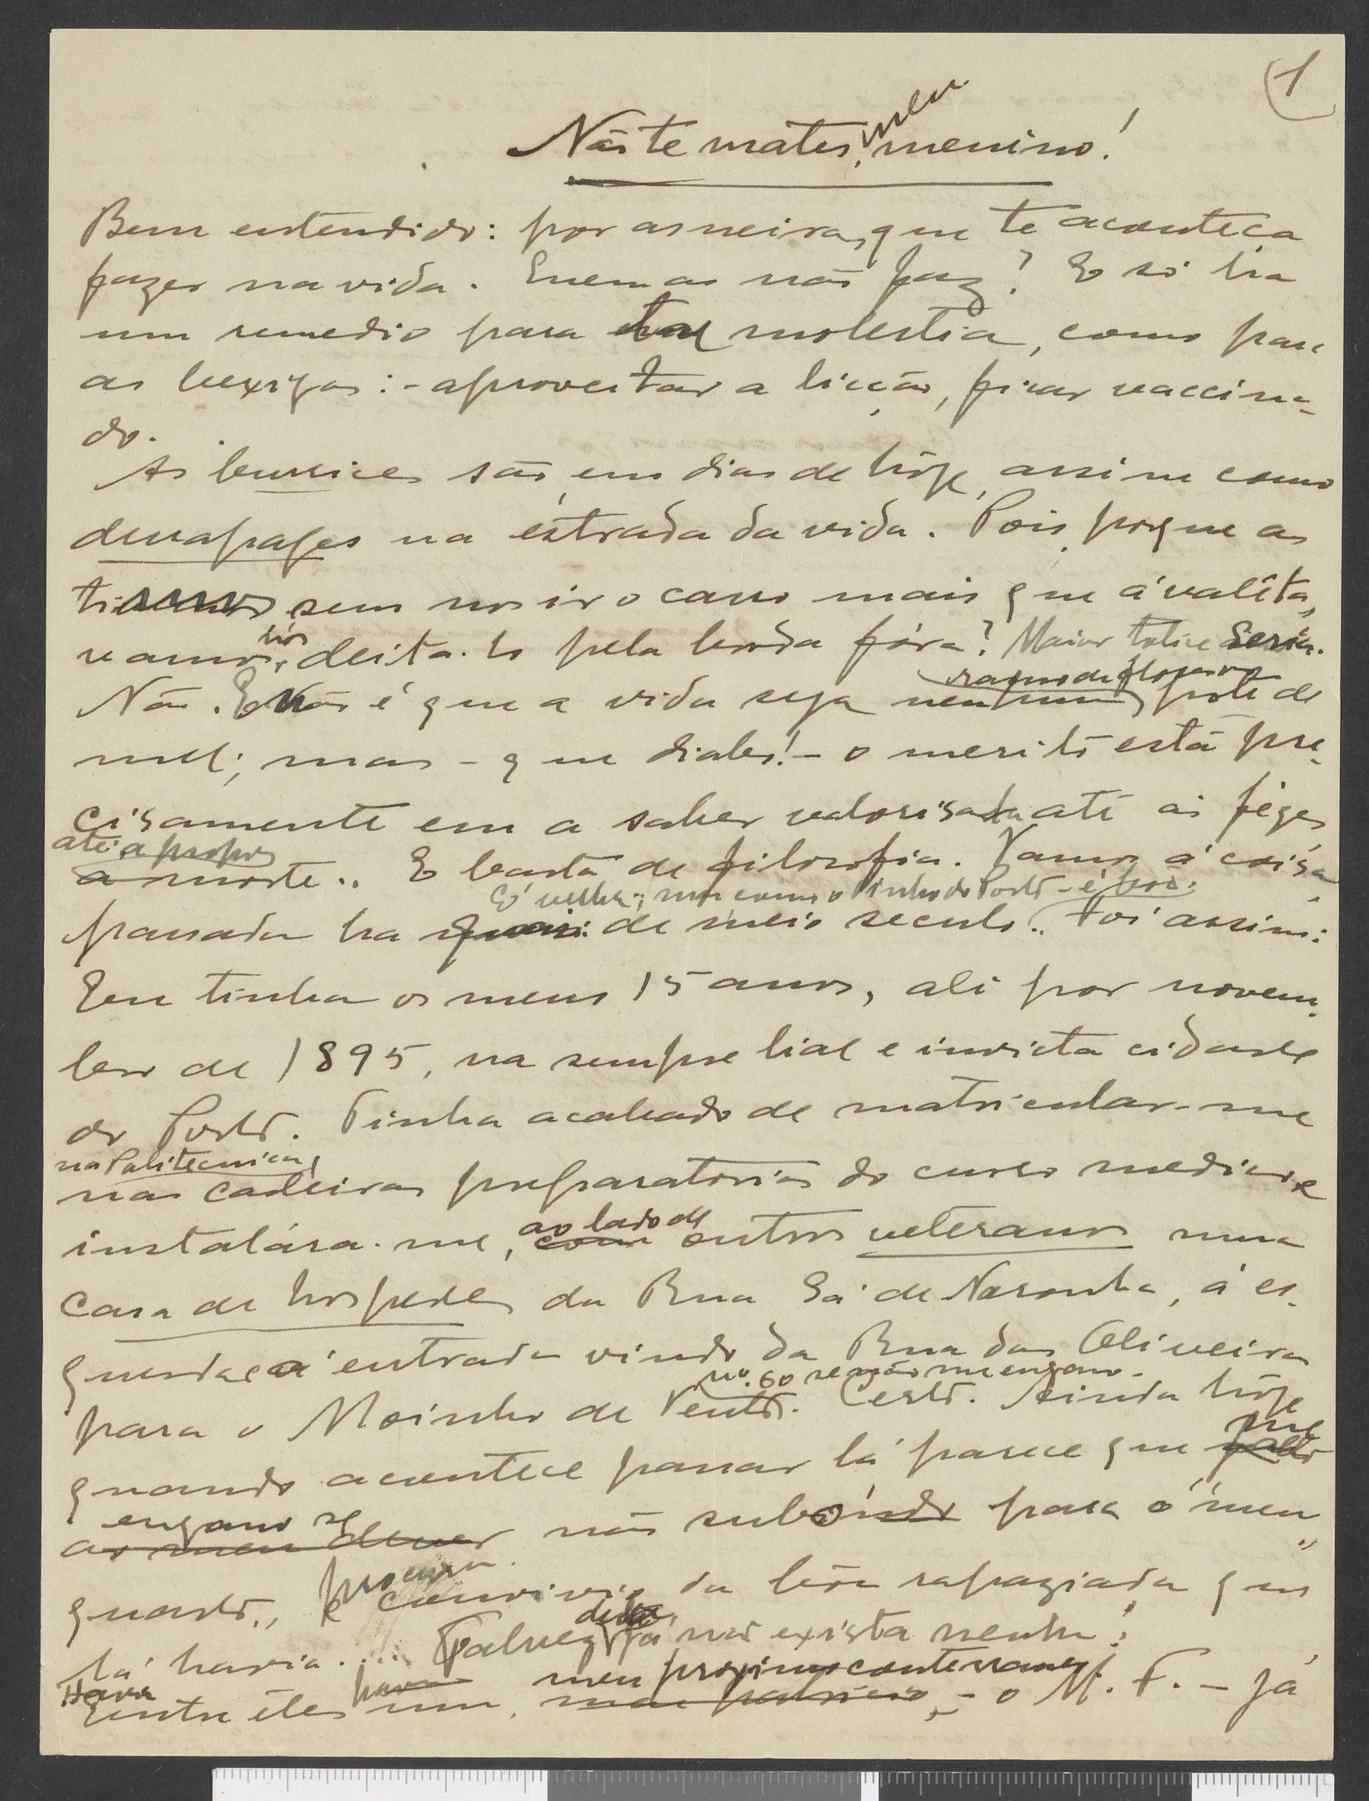 1
Não te mates, meu menino!
Bem entendido: por asneiras que te aconteça
fazer na vida. Quem as não faz? E só ha
um remedio para tal molestia, como para
as bexigas: - aproveitar a licção, ficar vaccina-
do.
As burrices são, em dias de hôje, assim como
derrapages na estrada da vida. Pois porque as
tiramos, sem nos ir o carro mais que á valêta,
vamos nós deita-lo pela borda fóra? Maior tolice seria.
Não. E não é que a vida seja ramo de flores ou pote de
mel; mas - que diabo! - o merito está pre-
cisamente em a saber valorisada até ás fézes
até a propos
a morte.. E basta de filosofia. Vamos á coisa
É velha; mas como o vinho do Porto - é boa.
passada ha quasi de meio seculo.. Foi assim:
Eu tinha os meus 15 anos, ali por novem-
bro de 1895, na sempre lial e invicta cidade
do Porto. Tinha acabado de matricular-me
na Politecnica,
nas cadeiras preparatorias do curso medico e
instalára-me, ao lado de outros veteranos numa
casa de hospedes da Rua Sá de Noronha, á es-
querda e á entrada vindo da Rua das Oliveiras
nº. 60 se não me engano.
para o Moinho de Vento. Certo. Ainda hôje
quando acontece passar lá parece que me
engano se
ao meu dever não subindo para o "meu
quarto", procura
e convivio da bôa rapaziada que
lá havia..... Talvez dela já não exista nenhum!
Havia
Entre êles um, meu proximo conterraneo, - o M. F. - já